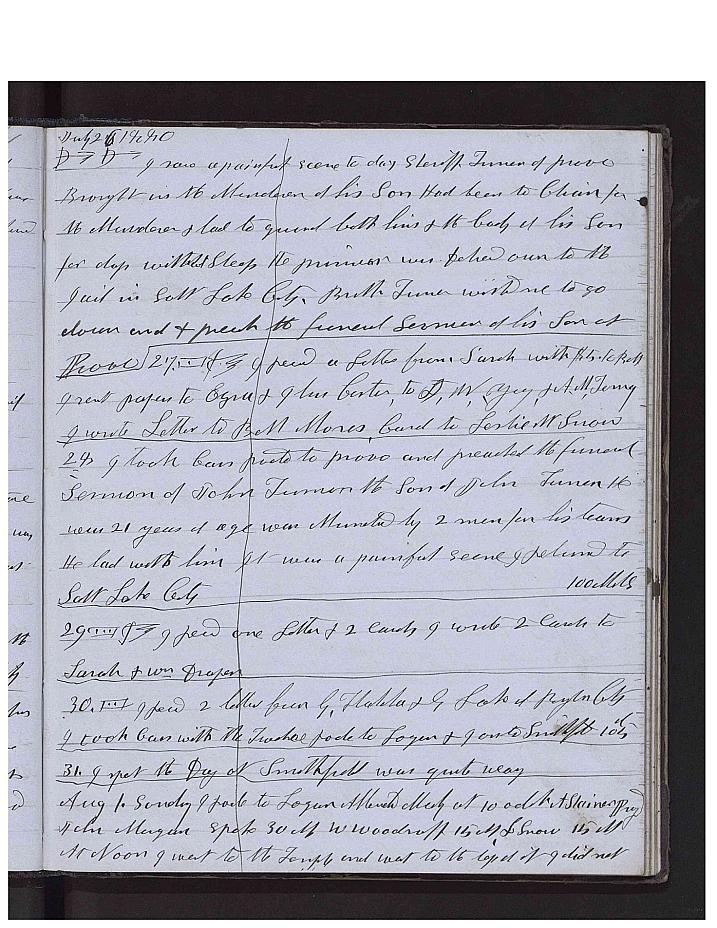 July 26 1880
I saw a painful scene to day Sheriff Turner of provo
Brought in the Murderer of his Son Had been to
the Murderer & had to guard both him & the body of his Son
for days without Sleep The prisoner was taken over to the
Jail in Salt Lake City. Brother Turner wished me to go
down and & preach the funeral Sermon of his Son at
Provo 27 I recd a letter from Sarah with
I sent papers to Ezra & to
I wrote Letter to Card to Leslie W Snow
28 I took Cars rode to provo and preached the funeral
Sermon of John Turner the Son of John Turner He
was 21 years of age was Murdered by 2 men for his team
He had with him It was a painful scene I returned to
Salt Lake City 100 Mils
29 I recd one Letter & 2 Cards I wrote 2 Cards to
Sarah & wm Draper
30. I recd 2 letter from & Lake of City
I took Cars with the Twelve rode to Logan & I on to Smithfld
31. I spet the Day at Smithfield was quite weary
Aug 1. Sunday I rode to Logan Attended Meeting at 10 oclok A Stainer Pryd
John Morgan Spoke 30 M W Woodruff 15 M L Snow 15 M
At Noon I went to the Temple and went to the top of it I did not